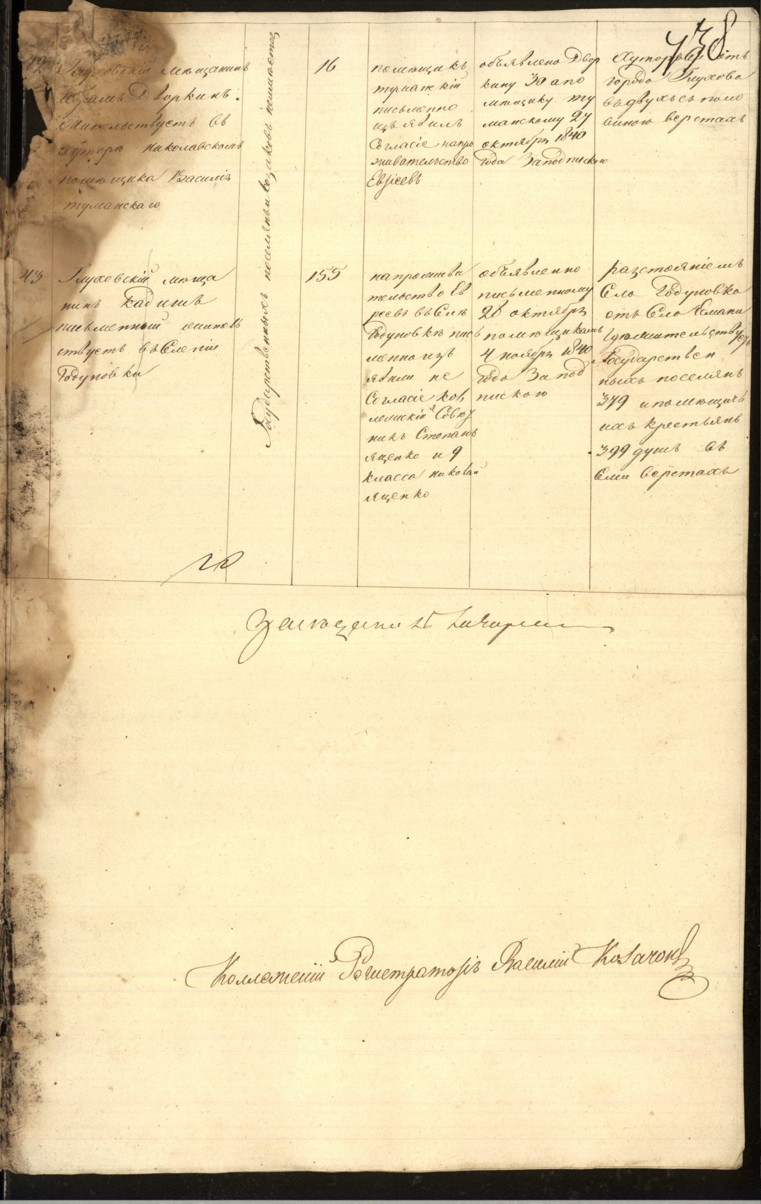 738
42
Глуховскій мещанинъ
Дворкинъ.
Жительствуетъ въ
хуторе николаевскомъ
помещика Василія
туманскаго
Государственныхъ поселянъ и козаковъ
16
помещикъ
туманскій
письменно
изъявилъ
Согласіе на про
живательство
Евреевъ
объявлено Двор
кину 30 а по
мещику ту
манскому 27
октября 1840
года За подпискою
Хуторъ
города Глухова
въ двухъ съ поло
виною верстахъ
43
Глуховскій меща
нинъ Кадишъ
письменный жител
ствуетъ въ Селеніи
Годуновки
155
на прожива
тельство Ев
реевъ въ Селе
Годуновке пись
менно изъ
явили не
Согласіе кол
лежскій Совет
никъ Степанъ
Яценко и 9
класса
Яценко
объявленно
письменному
20 октября
помещикамъ
4 ноября 1840
года За под
пискою
разстояніемъ
Село Годуновка
отъ Села Эсмани
Государствен
ныхъ поселянъ
349 и помещичь
ихъ крестьянъ
399 душъ въ
Семи верстахъ
Коллежскій Регистраторъ Василій Козачок